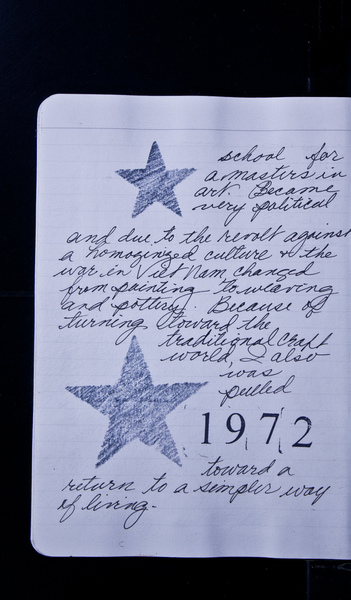 school for
a masters in
art. Became
very political
and due to the revolt against
a homoginized culture & the
war in Viet Nam changed
from painting to weaving
and pottery. Because of
turning toward the
traditional craft
world, I also
was
pulled
1972
toward a
return to a simpler way
of living.